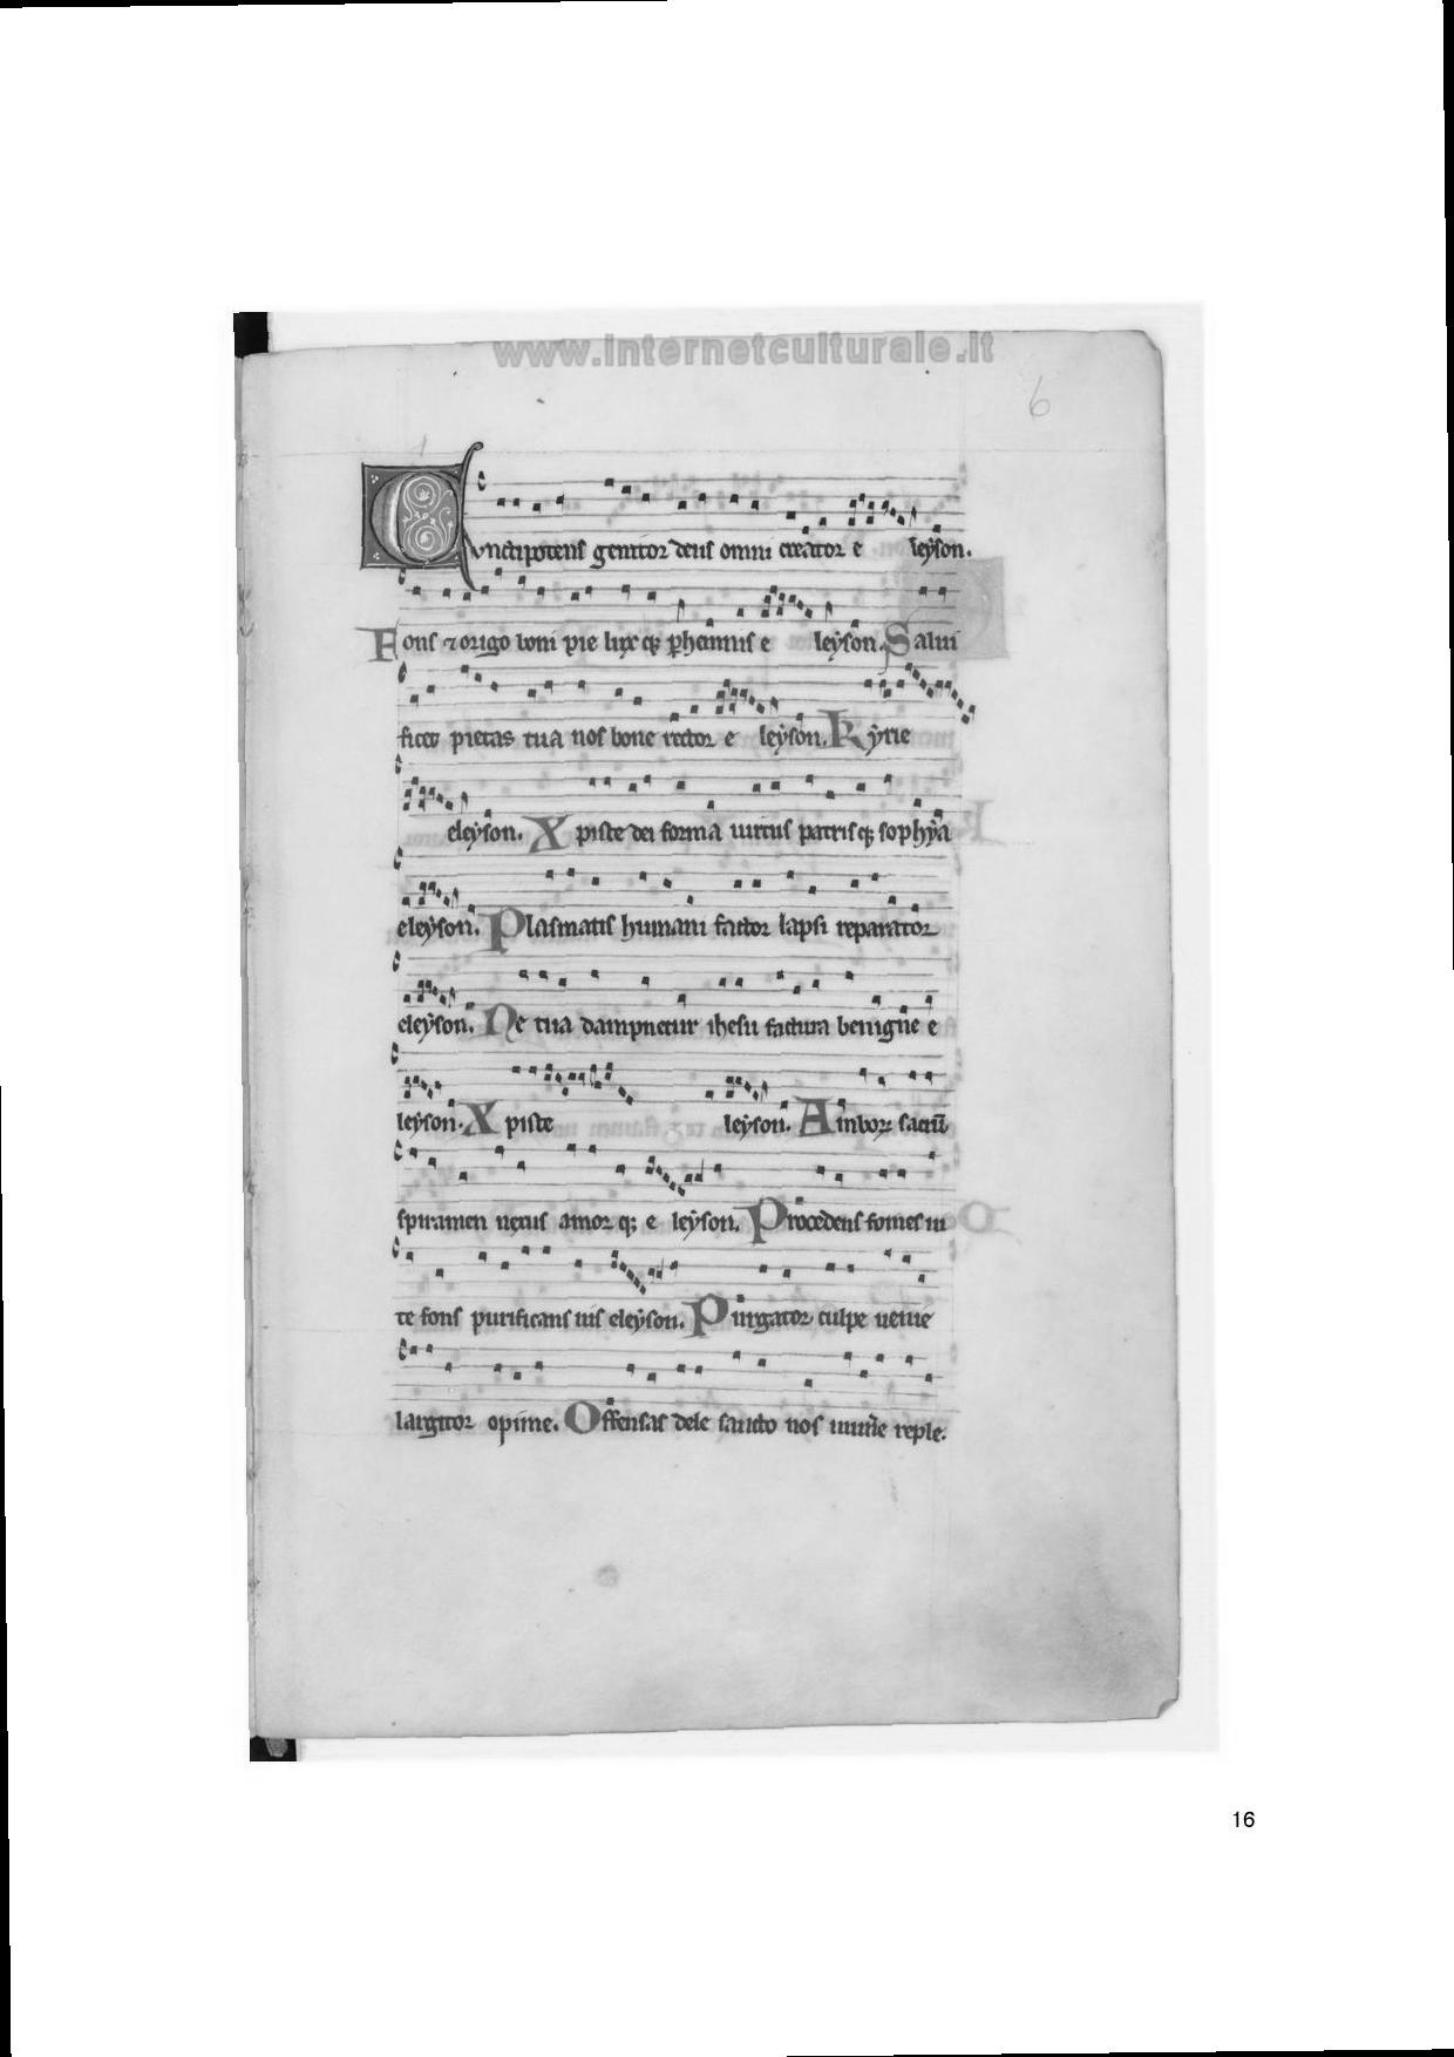 www.internetculturale.it
6
Cunctipotens genitor deus omni creator e leyson.
Fons ⁊ origo boni pie lux qꝫ ꝑhennis e leyson. Salui
ficet pietas tua nos bone rector e leyson. Kyrie
eleyson. Xpiste dei forma uirtus patris qꝫ sophya
eleyson. Plasmatis humani factor lapsi reparator
eleyson. Ne tua dampnetur ihesu factura benigne e
leyson. Xpiste leyson. Amboꝝ sacrū
spiramen nexus amor q; e leyson. Procedens fomes ui
te fons purificans uis eleyson. Purgator culpe uenie
largitor opime. Offensas dele sancto nos mun̄e reple.
16